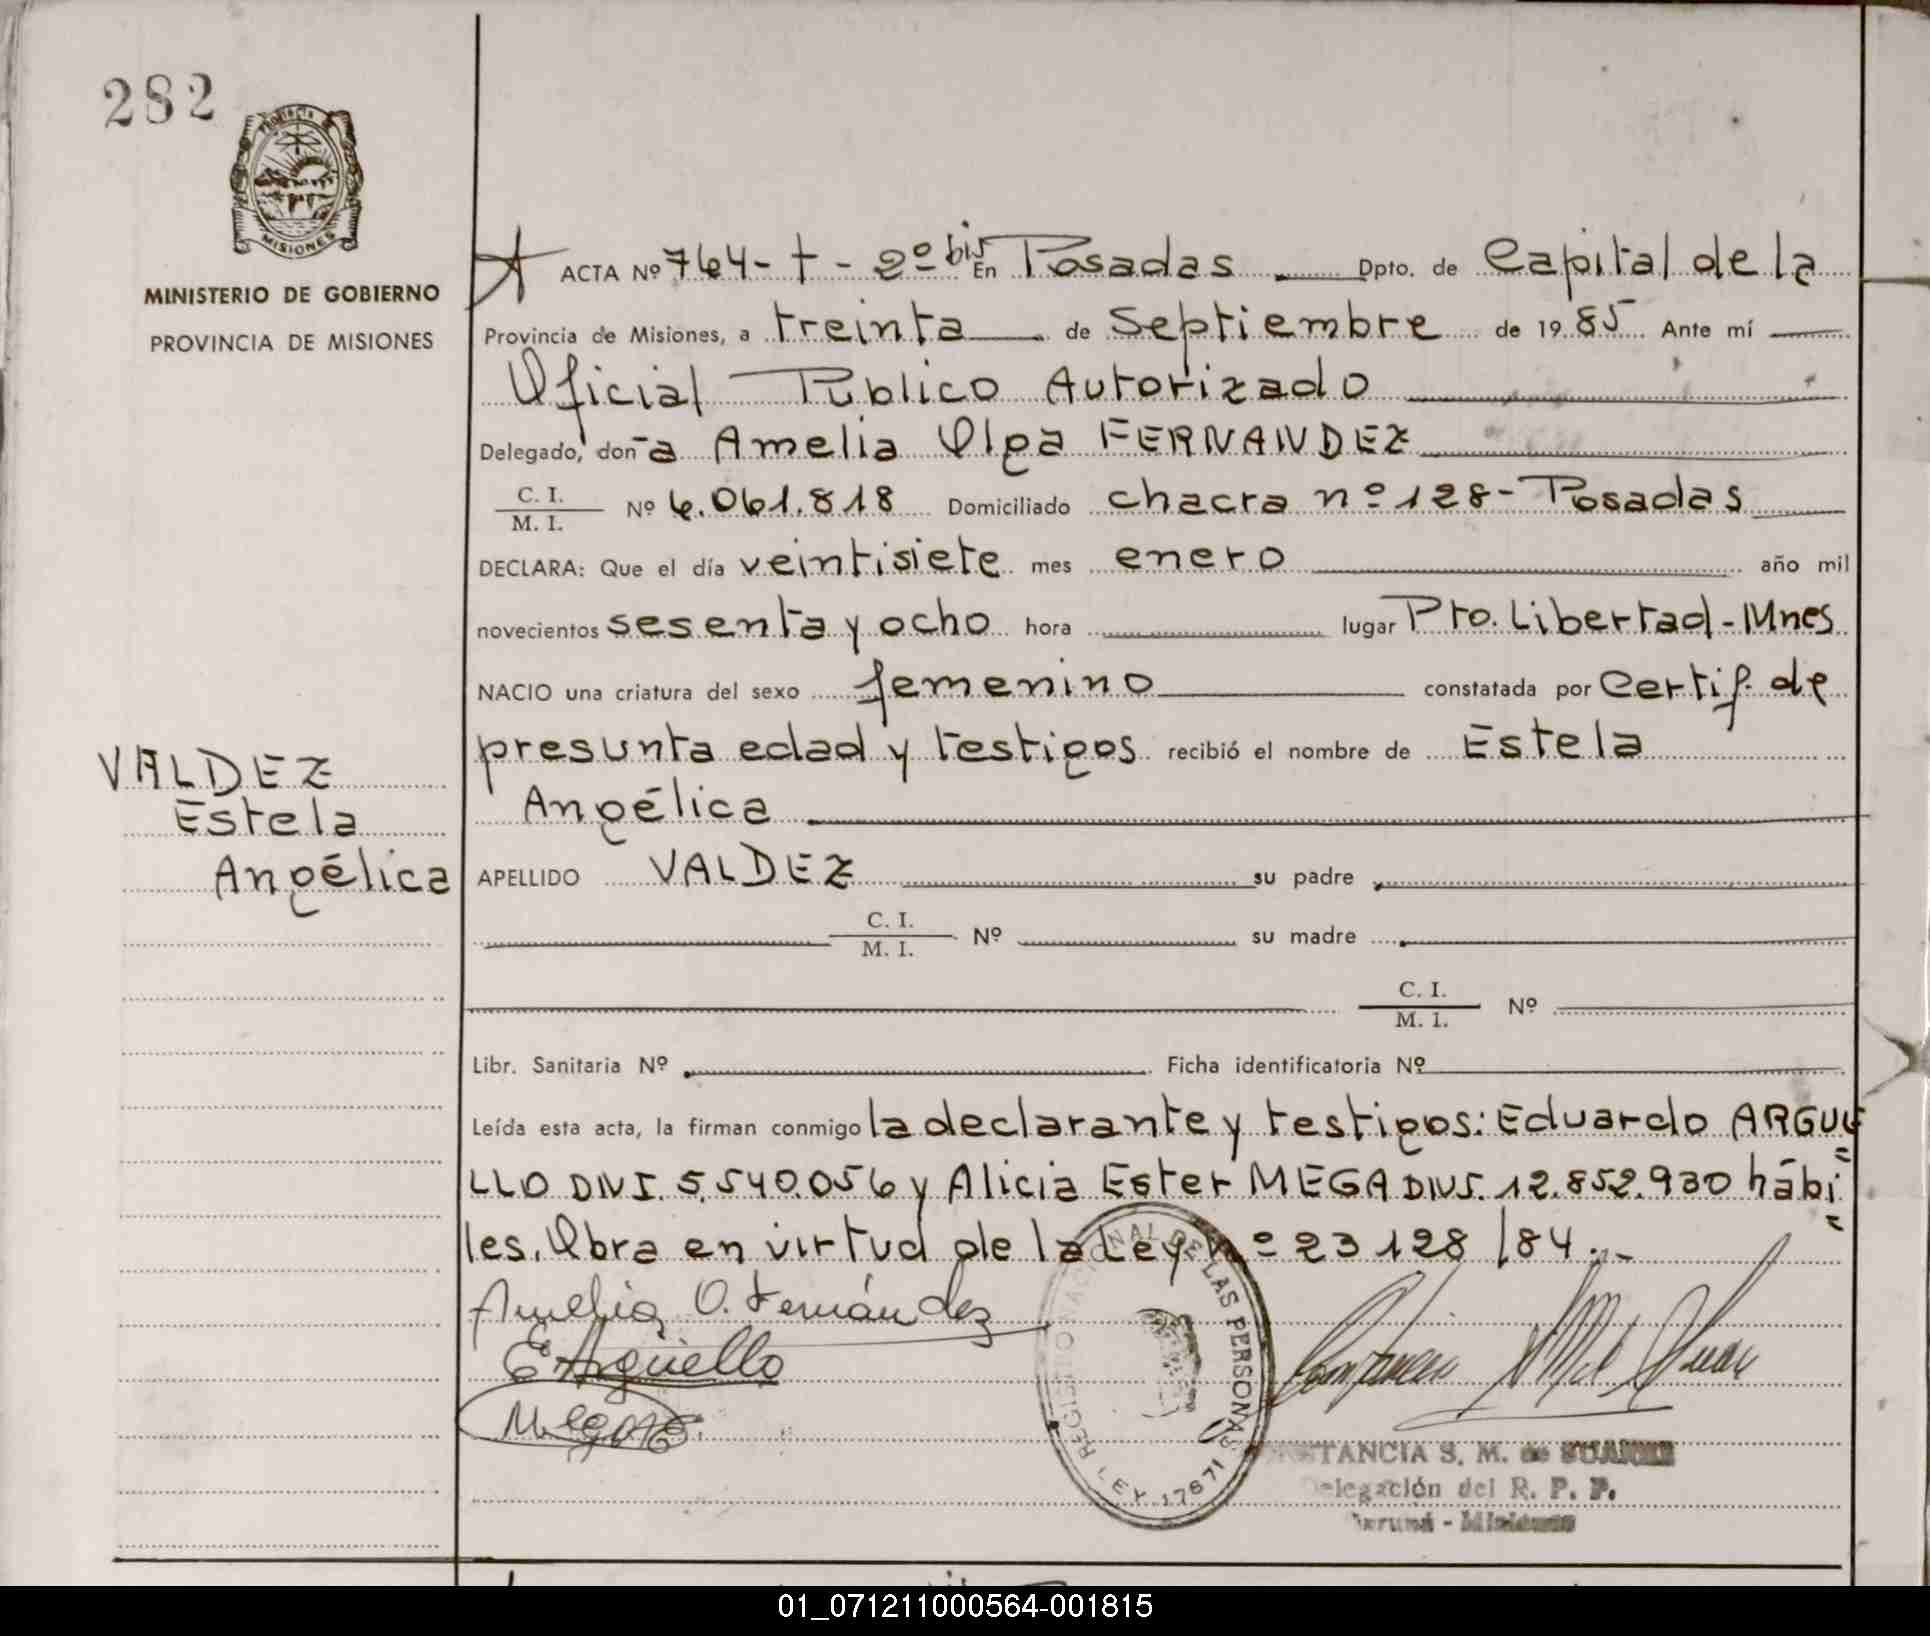 282
PROVINCIA DE
MISIONES
MINISTERIO DE GOBIERNO
PROVINCIA DE MISIONES
ACTA Nº 764- t - 2º bis En Posadas Dpto. de Capital de la
Provincia de Misiones, a treinta de Septiembre de 1985 Ante mí
Oficial Público Autorizado
Delegado, doña Amelia Olga FERNANDEZ
C. I.
M. I. Nº 6.061.818 Domiciliado chacra nº 128- Posadas
DECLARA: Que el día veintisiete mes enero año mil
novecientos sesenta y ocho hora lugar Pto. Libertad - Mnes
NACIO una criatura del sexo femenino constatada por Certif. de
presunta edad y testigos recibió el nombre de Estela
Angélica
VALDEZ
Estela
Angélica
APELLIDO VALDEZ su padre
C. I.
M. I. Nº su madre
C. I.
M. I. Nº
Libr. Sanitaria Nº Ficha identificatoria Nº
Leída esta acta, la firman conmigo la declarante y testigos: Eduardo ARGUE=
LLO DNI. 5.540.056 y Alicia Ester MEGA DNI. 12.852.930 hábi=
les. Obra en virtud de la Ley nº 23128/84.-
Amelia O. Fernández
E Argüello
REGISTRO NACIONAL DE LAS PERSONAS
LEY 17671
CONSTANCIA S. M. de SUAREZ
Delegación del R. P. P.
Misiones
01_071211000564-001815